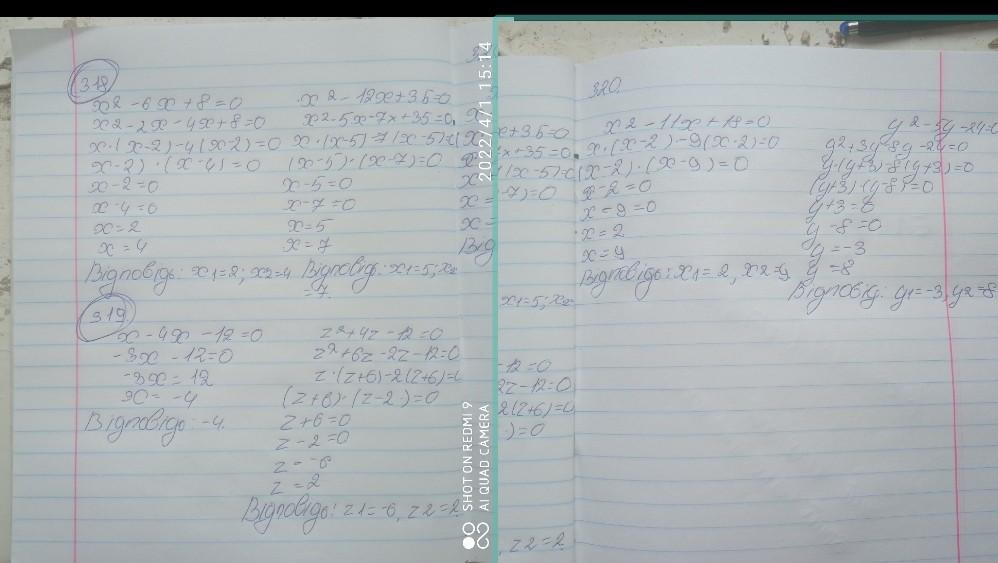 318
x2 - 6x + 8 = 0
x2 - 2x - 4x + 8 = 0
x·(x-2) - 4(x-2) = 0
x-2)·(x-4) = 0
x-2=0
x-4=0
x=2
x=4
Відповідь: x1=2; x2=4
x2 - 12x + 35 = 0
x2 - 5x - 7x + 35 = 0
x·(x-5) - 7(x-5) =
(x-5)·(x-7) = 0
x-5=0
x-7=0
x=5
x=7
Відповідь: x1=5; x2
=7.
319
x - 4x - 12 = 0
-3x - 12 = 0
-3x = 12
x = -4
Відповідь: -4.
z2 + 4z - 12 = 0
z2 + 6z - 2z - 12 = 0
z·(z+6) - 2(z+6) =
(z+6)·(z-2) = 0
z+6=0
z-2=0
z=-6
z=2
Відповідь: z1=-6, z2=2
SHOT ON REDMI 9
AI QUAD CAMERA
2022/4/1 15:14
x+35=0
x+35=0
(x-5)=0
-7)=0
x1=5; x2
-12=0
2z-12=0
2(z+6)=0
)=0
, z2=2
320.
x2 - 11x + 18 = 0
x·(x-2) - 9(x-2) = 0
(x-2)·(x-9) = 0
x-2=0
x=9=0
x=2
x=9
Відповідь: x1=2, x2=9
y2 - 5y - 24=0
y2+3y-8y-24=0
y·(y+3)-8(y+3)=0
(y+3)·(y-8)=0
y+3=0
y-8=0
y=-3
y=8
Відповідь: y1=-3, y2=8